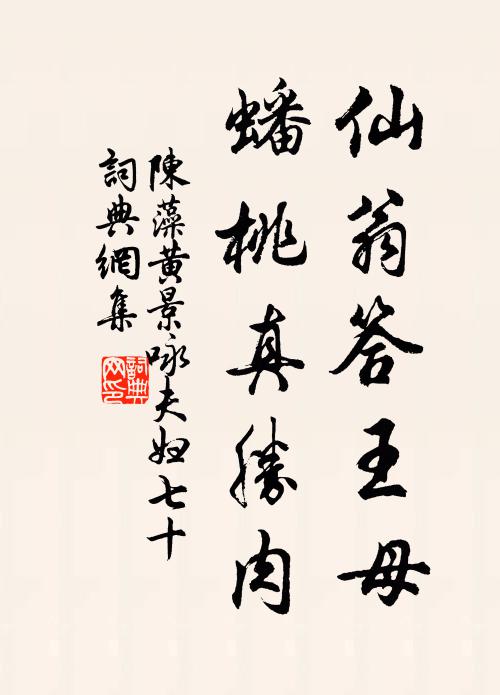 仙翁答王母
蟠桃真勝肉
陳藻黃景咏夫妇七十
詞典網集
詞典网印